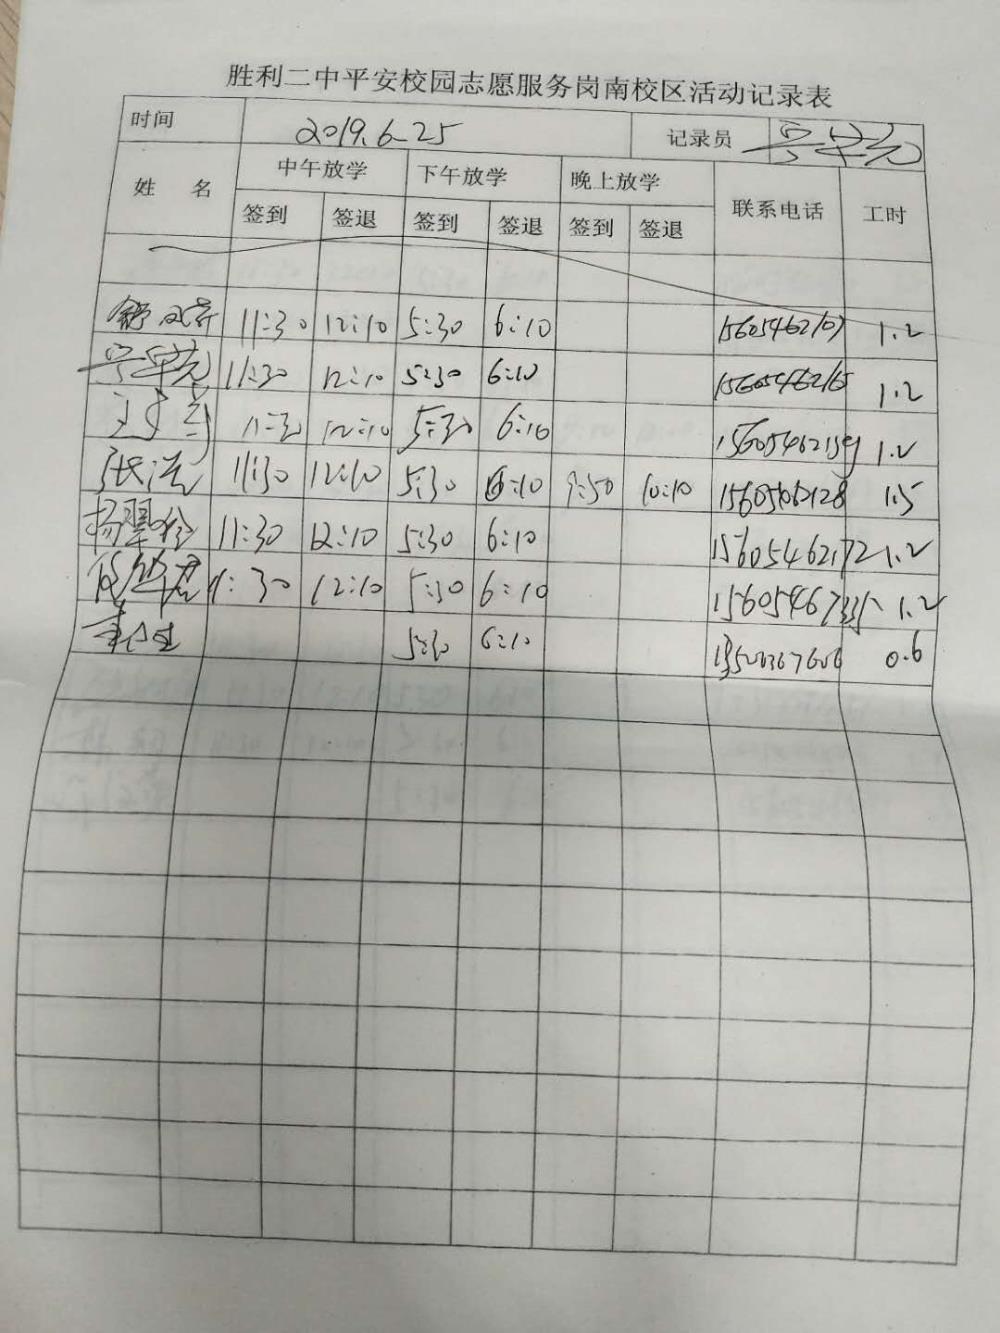 胜利二中平安校园志愿服务岗南校区活动记录表
时间 2019.6-25 记录员
姓 名 中午放学 下午放学 晚上放学 联系电话 工时
签到 签退 签到 签退 签到 签退
11:30 12:10 5:30 6:10 1.2
11:30 12:10 5:30 6:10 15605462165 1.2
11:30 12:10 5:30 6:10 15605462159 1.2
张 11:30 12:10 5:30 6:10 9:50 10:10 1.5
杨翠 11:30 12:10 5:30 6:10 15605462172 1.2
11:30 12:10 5:30 6:10 1.2
5:30 6:10 0.6